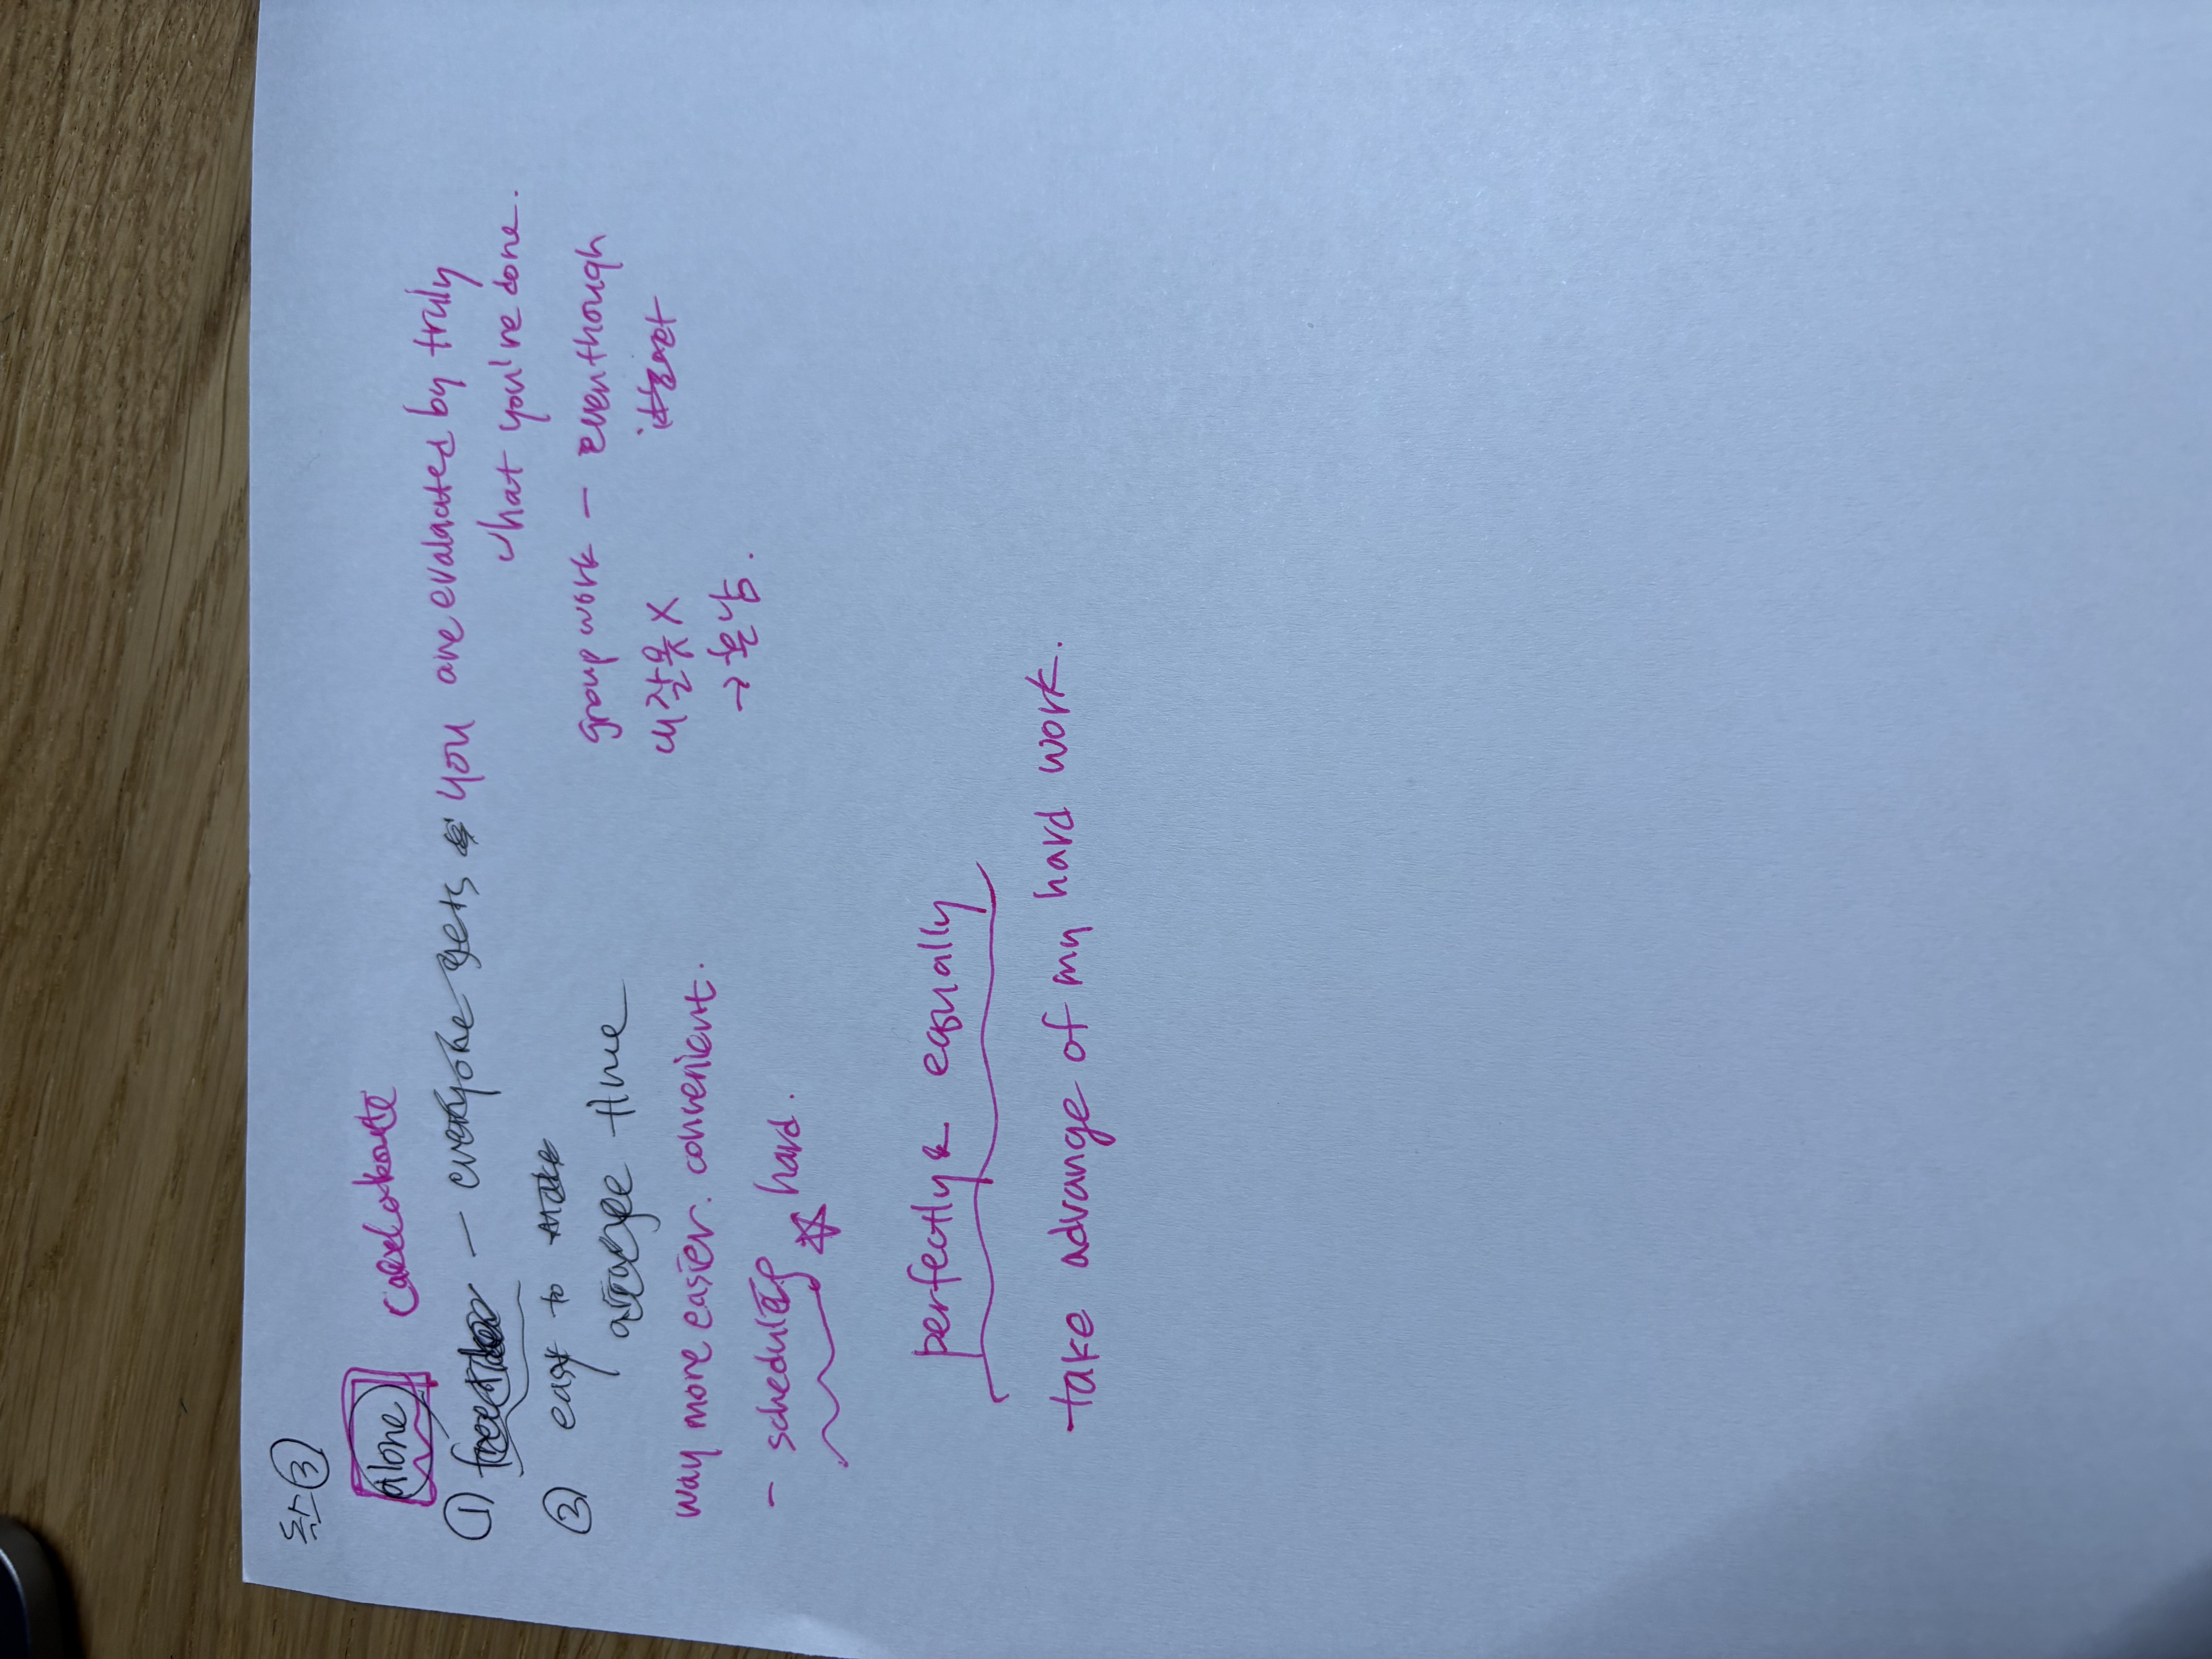 독 ③
alone
① — everyone gets you are evaluated by truly
what you're done.
② easy to make
arrange time
group work – eventhough
내 잘못 X
→ 혼남.
way more easier. convenient.
- scheduling hard.
perfectly & equally
take advange of my hard work.